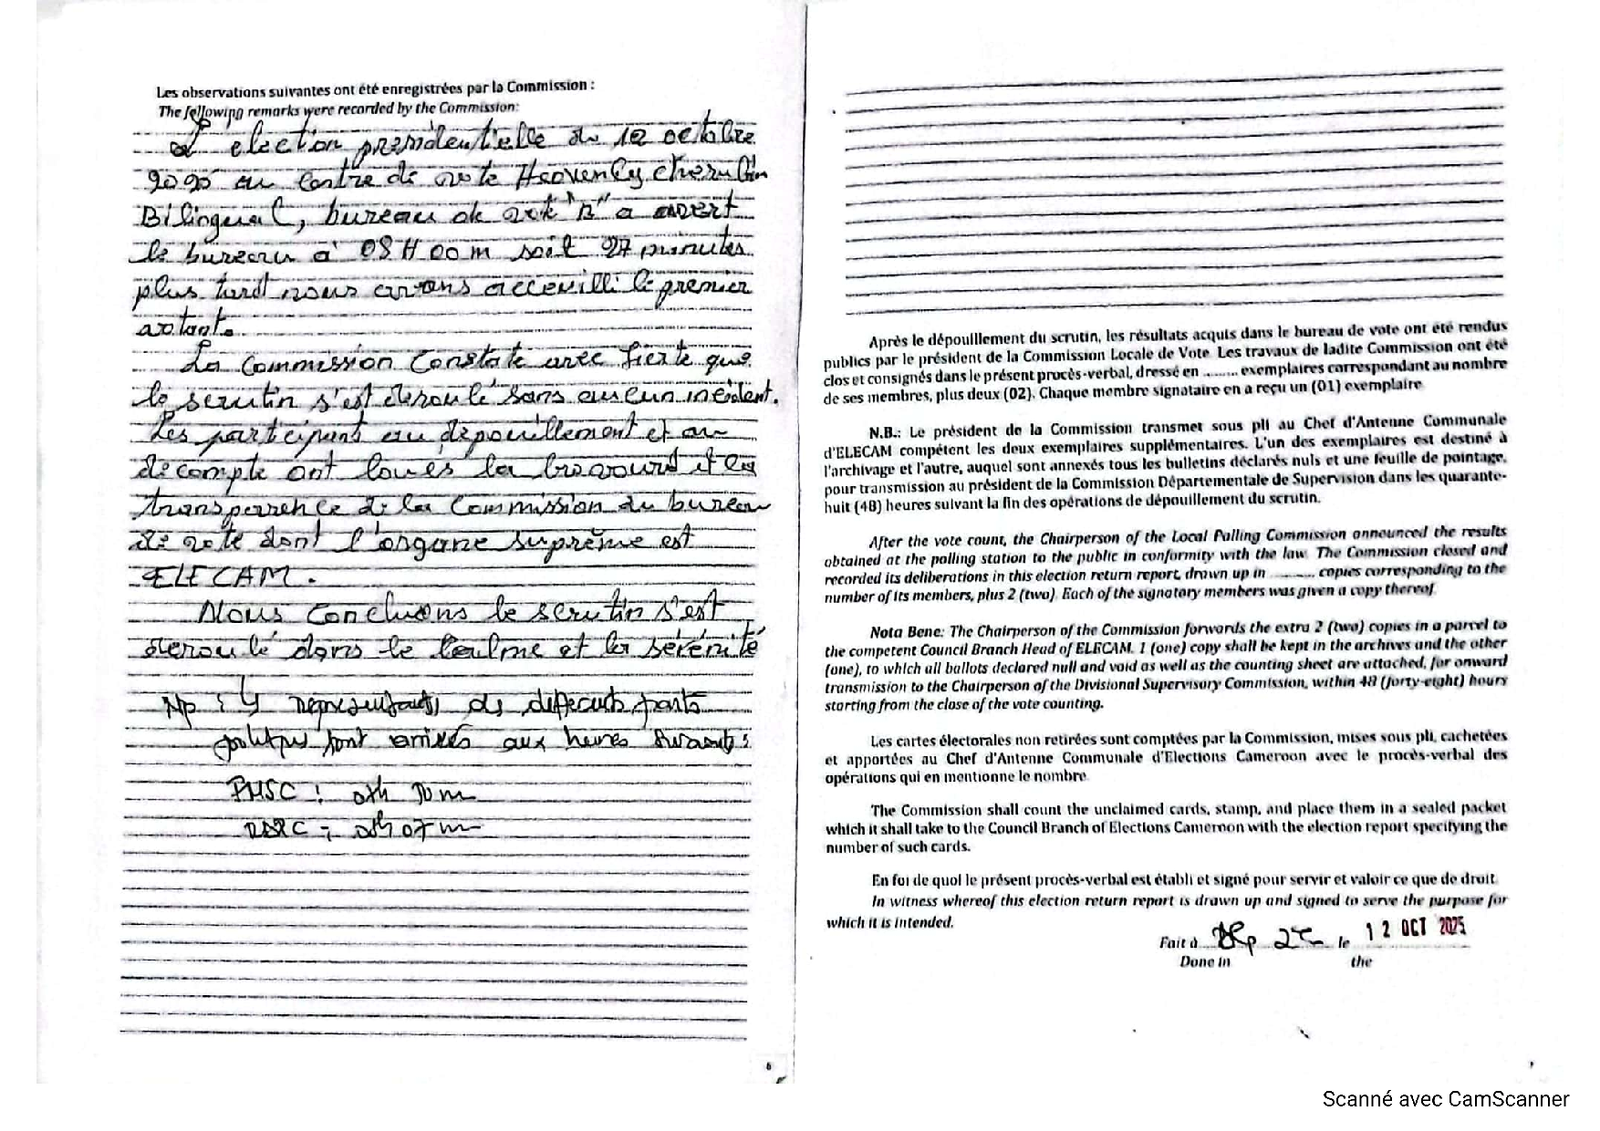 Les observations suivantes ont été enregistrées par la Commission :
The following remarks were recorded by the Commission:
L'élection présidentielle du 12 octobre
2025 au centre de vote Heavenly cherubin
Bilingual, bureau de vote "B" a ouvert
le bureau à 08 H 00 m soit 27 minutes
plus tard nous avons accueilli le premier
votant.
La Commission Constate avec fierté que
le scrutin s'est déroulé sans aucun incident.
Les participants au dépouillement et au
décompte ont loués la bravoure et la
transparence de la Commission du bureau
de vote dont l'organe suprême est
ELECAM.
Nous Concluons le scrutin s'est
déroulé dans le calme et la sérénité
représentants des différents partis
politiques sont arrivés aux heures suivantes :
07 m
Après le dépouillement du scrutin, les résultats acquis dans le bureau de vote ont été rendus
publics par le président de la Commission Locale de Vote. Les travaux de ladite Commission ont été
clos et consignés dans le présent procès-verbal, dressé en ......... exemplaires correspondant au nombre
de ses membres, plus deux (02). Chaque membre signataire en a reçu un (01) exemplaire.
N.B.: Le président de la Commission transmet sous pli au Chef d'Antenne Communale
d'ELECAM compétent les deux exemplaires supplémentaires. L'un des exemplaires est destiné à
l'archivage et l'autre, auquel sont annexés tous les bulletins déclarés nuls et une feuille de pointage,
pour transmission au président de la Commission Départementale de Supervision dans les quarante-
huit (48) heures suivant la fin des opérations de dépouillement du scrutin.
After the vote count, the Chairperson of the Local Polling Commission announced the results
obtained at the polling station to the public in conformity with the law. The Commission closed and
recorded its deliberations in this election return report, drawn up in ......... copies corresponding to the
number of its members, plus 2 (two). Each of the signatory members was given a copy thereof.
Nota Bene: The Chairperson of the Commission forwards the extra 2 (two) copies in a parcel to
the competent Council Branch Head of ELECAM. 1 (one) copy shall be kept in the archives and the other
(one), to which all ballots declared null and void as well as the counting sheet are attached, for onward
transmission to the Chairperson of the Divisional Supervisory Commission, within 48 (forty-eight) hours
starting from the close of the vote counting.
Les cartes électorales non retirées sont comptées par la Commission, mises sous pli, cachetées
et apportées au Chef d'Antenne Communale d'Elections Cameroon avec le procès-verbal des
opérations qui en mentionne le nombre.
The Commission shall count the unclaimed cards, stamp, and place them in a sealed packet
which it shall take to the Council Branch of Elections Cameroon with the election report specifying the
number of such cards.
En foi de quoi le présent procès-verbal est établi et signé pour servir et valoir ce que de droit.
In witness whereof this election return report is drawn up and signed to serve the purpose for
which it is intended.
Fait à le 12 OCT 2025
Done in the
Scanné avec CamScanner